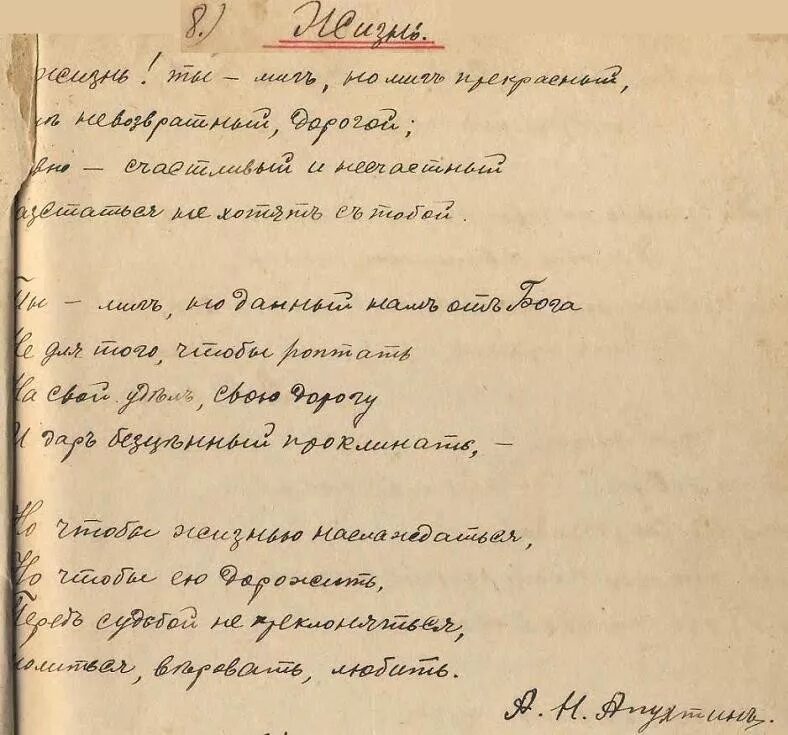 8.) Жизнь.
жизнь! ты – мигъ, но мигъ прекрасный,
невозвратный, дорогой;
вно – счастливый и несчастный
азстаться не хотятъ съ тобой.
Ты – мигъ, но данный намъ отъ Бога
Не для того, чтобы роптать
На свой удѣлъ, свою дорогу
И даръ безцѣнный проклинать, –
Но чтобы жизнью наслаждаться,
Но чтобы ею дорожить,
Передъ судьбой не преклоняться,
олиться, вѣровать, любить.
А. Н. Апухтинъ.